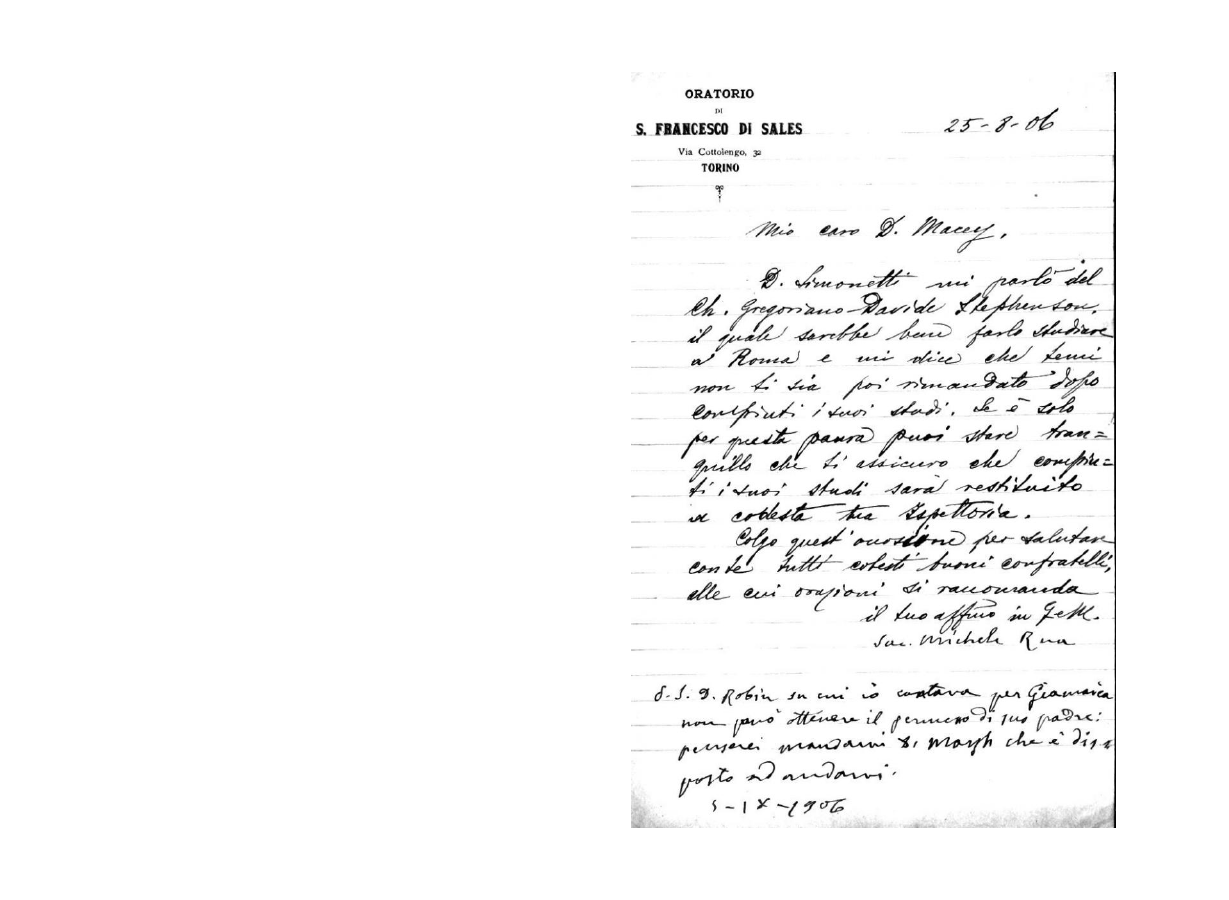 ORATORIO
DI
S. FRANCESCO DI SALES
Via Cottolengo, 32
TORINO
25-8-06
Mio caro D. Macey,
D. Simonetti mi parlò del
Ch. Gregoriano-Davide Stephenson,
il quale sarebbe bene farlo studiare
a Roma e mi dice che temi
non ti sia poi rimandato dopo
compiuti i suoi studi. Se è solo
per questa paura puoi stare tran=
quillo che ti assicuro che compiu=
ti i suoi studi sarà restituito
a codesta tua Ispettoria.
Colgo quest'occasione per salutare
con te tutti cotesti buoni confratelli,
alle cui orazioni si raccomanda
il tuo affmo in G. e M.
Sac. Michele Rua
P. S. D. Robin su cui io contava per Giamaica
non può ottenere il permesso di suo padre:
penserei mandarvi D. Marsh che è dis
posto ad andarvi.
5-IX-1906